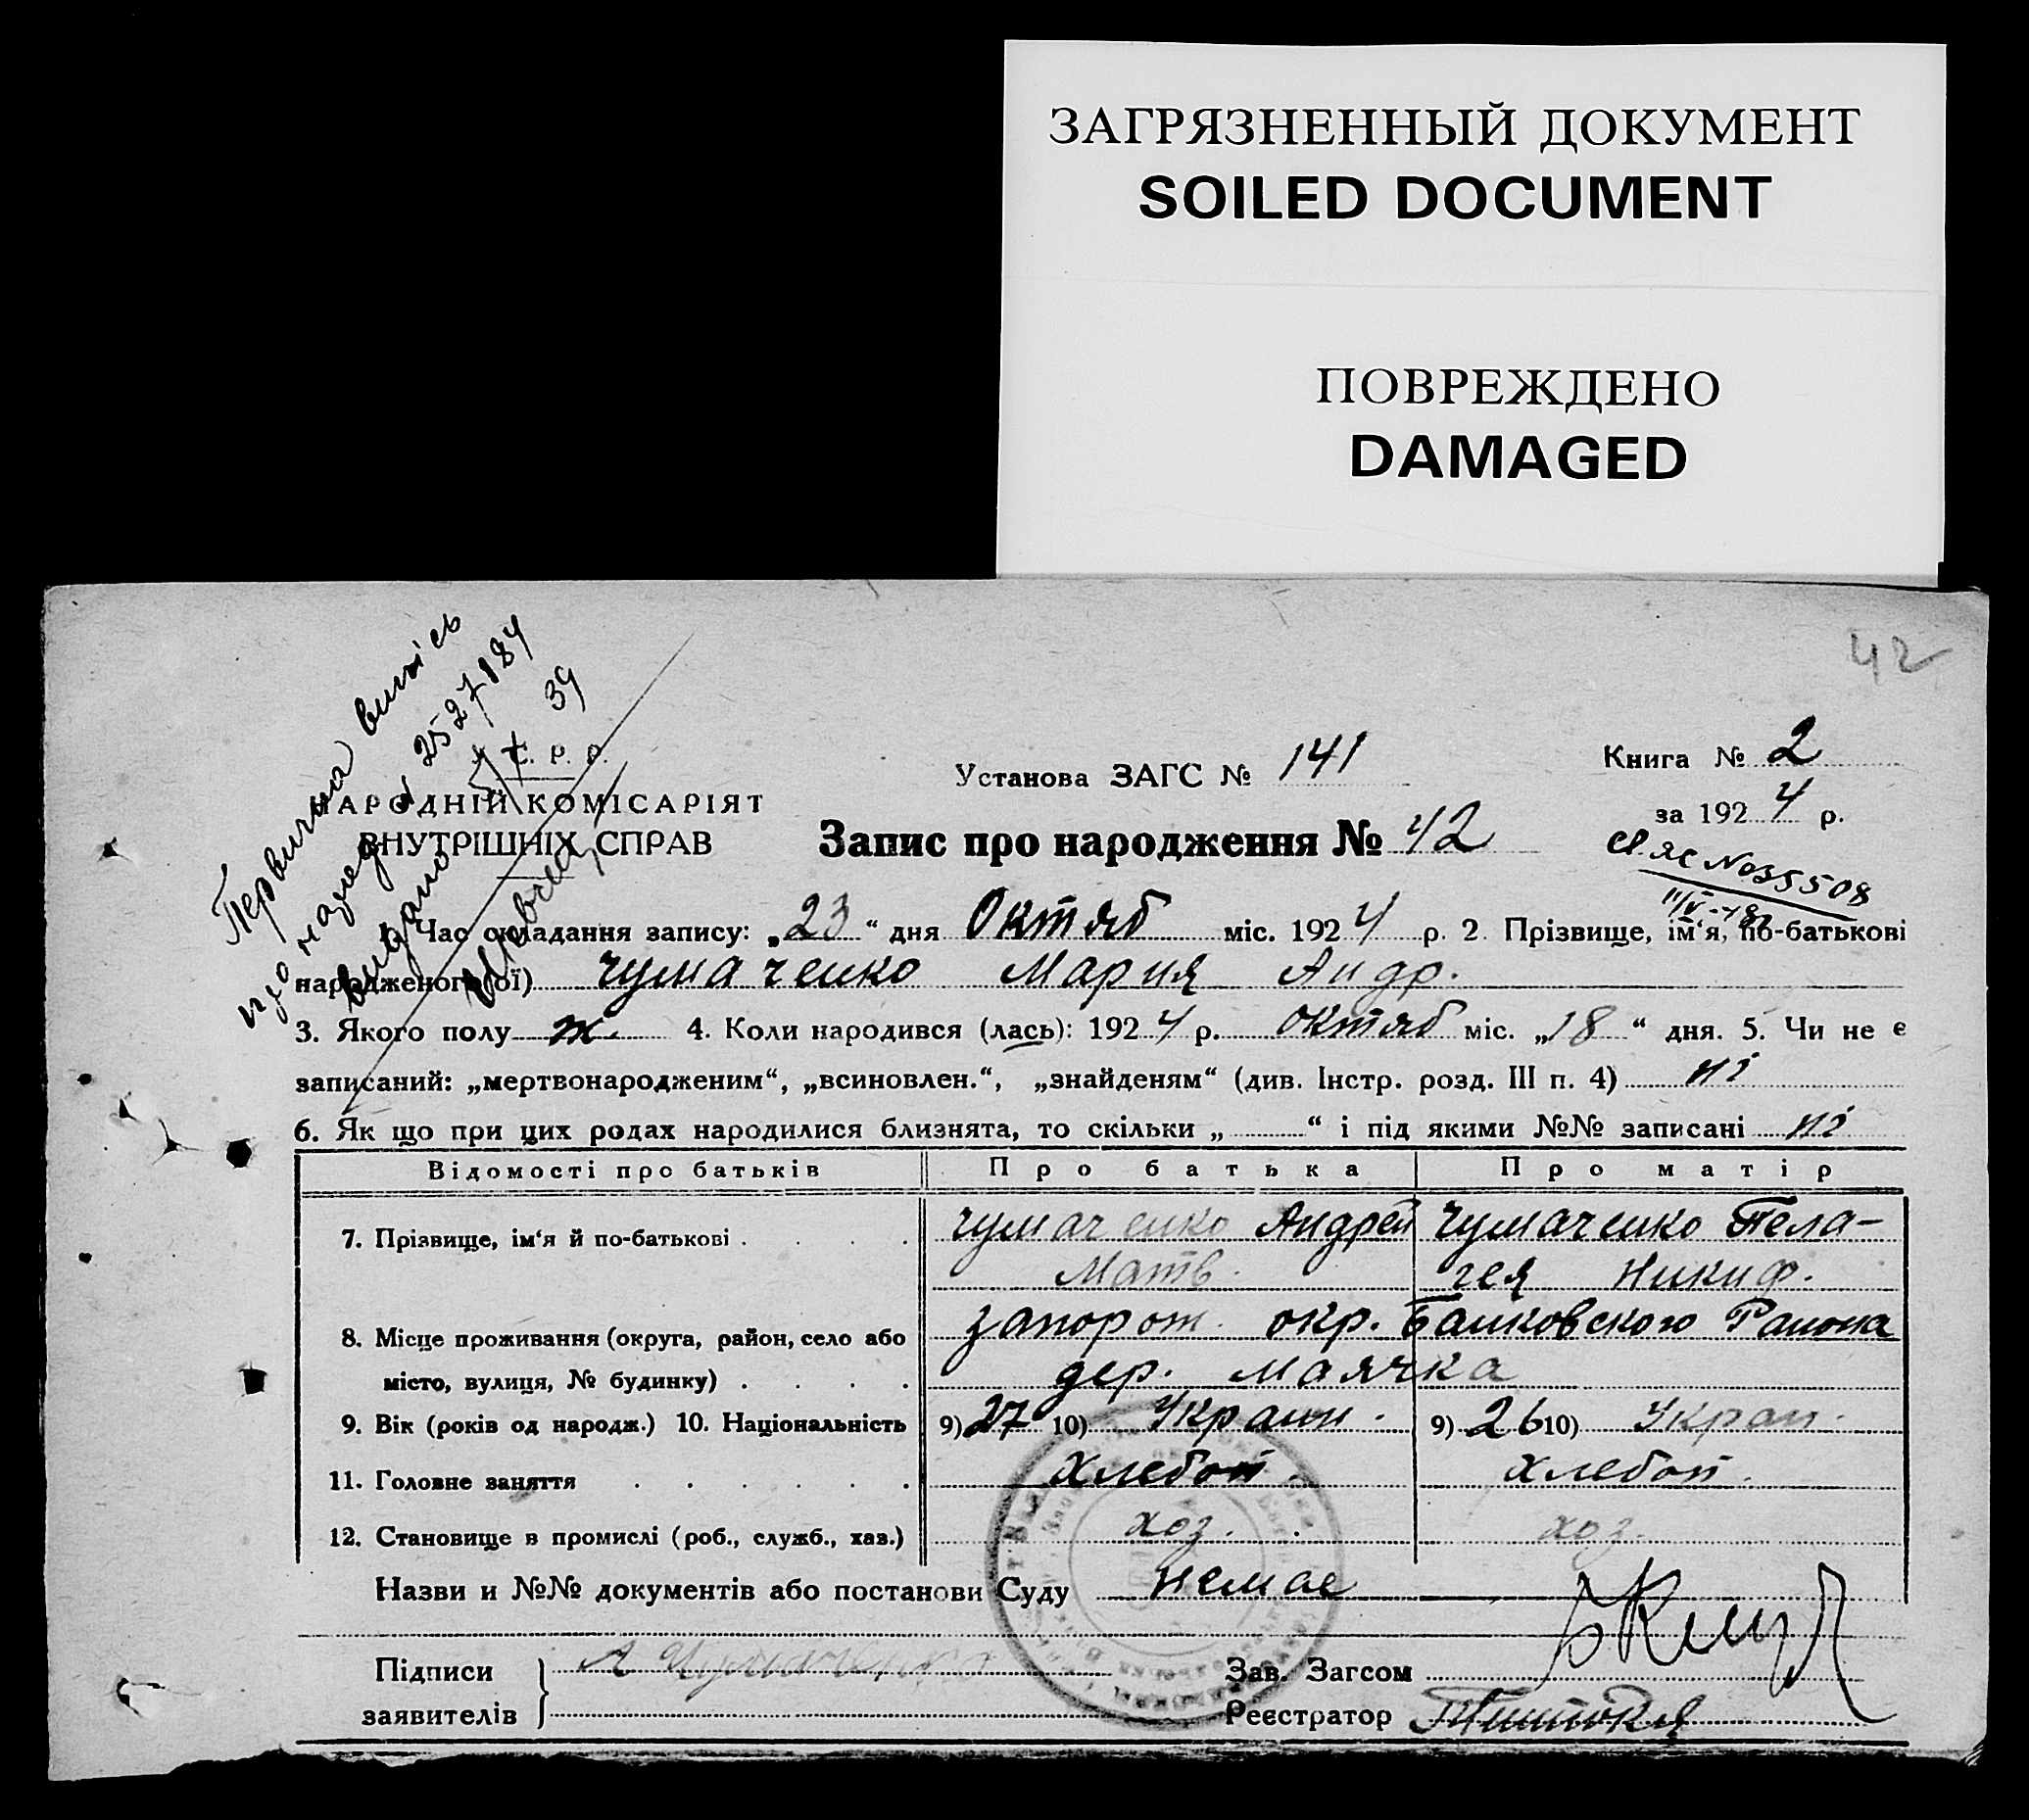 ЗАГРЯЗНЕННЫЙ ДОКУМЕНТ
SOILED DOCUMENT
ПОВРЕЖДЕНО
DAMAGED
42
Первична випись
про народ № 2527184
видано 39
С. Р. Р.
НАРОДНІЙ КОМІСАРІЯТ
ВНУТРІШНІХ СПРАВ
Установа ЗАГС № 141
Книга № 2
за 1924 р.
Запис про народження № 42
№035508
1. Час складання запису: „23“ дня Октяб міс. 1924 р. 2. Прізвище, ім‘я, по-батькові
народженого(ої) Чумаченко Мария Андр.
3. Якого полу ж. 4. Коли народився (лась): 1924 р. октяб міс. „18“ дня. 5. Чи не є
записаний: „мертвонародженим“, „всиновлен.“, „знайденям“ (див. Інстр. розд. III п. 4) ні
6. Як що при цих родах народилися близнята, то скільки „ “ і під якими №№ записані ні
Відомості про батьків Про батька Про матір
7. Прізвище, ім‘я й по-батькові . . . . Чумаченко Андрей Чумаченко Пела-
Матв. гея Никиф.
8. Місце проживання (округа, район, село або запорож. окр. Башковского Раиона
місто, вулиця, № будинку) . . . . дер. Маячка
9. Вік (років од народж.) 10. Національність 9) 27 10) Украин. 9) 26 10) Украи.
11. Головне заняття . . . . . . Хлебоп. Хлебоп.
12. Становище в промислі (роб., служб., хаз.) хоз. хоз.
Назви и №№ документів або постанови Суду немае
Підписи А Чумаченко Зав. Загсом
заявителів Реєстратор